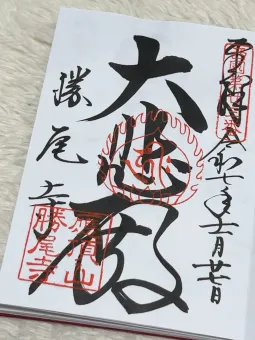 奉拝 令和七年十二月廿七日
大悲殿
勝尾寺
應頂山
勝尾寺